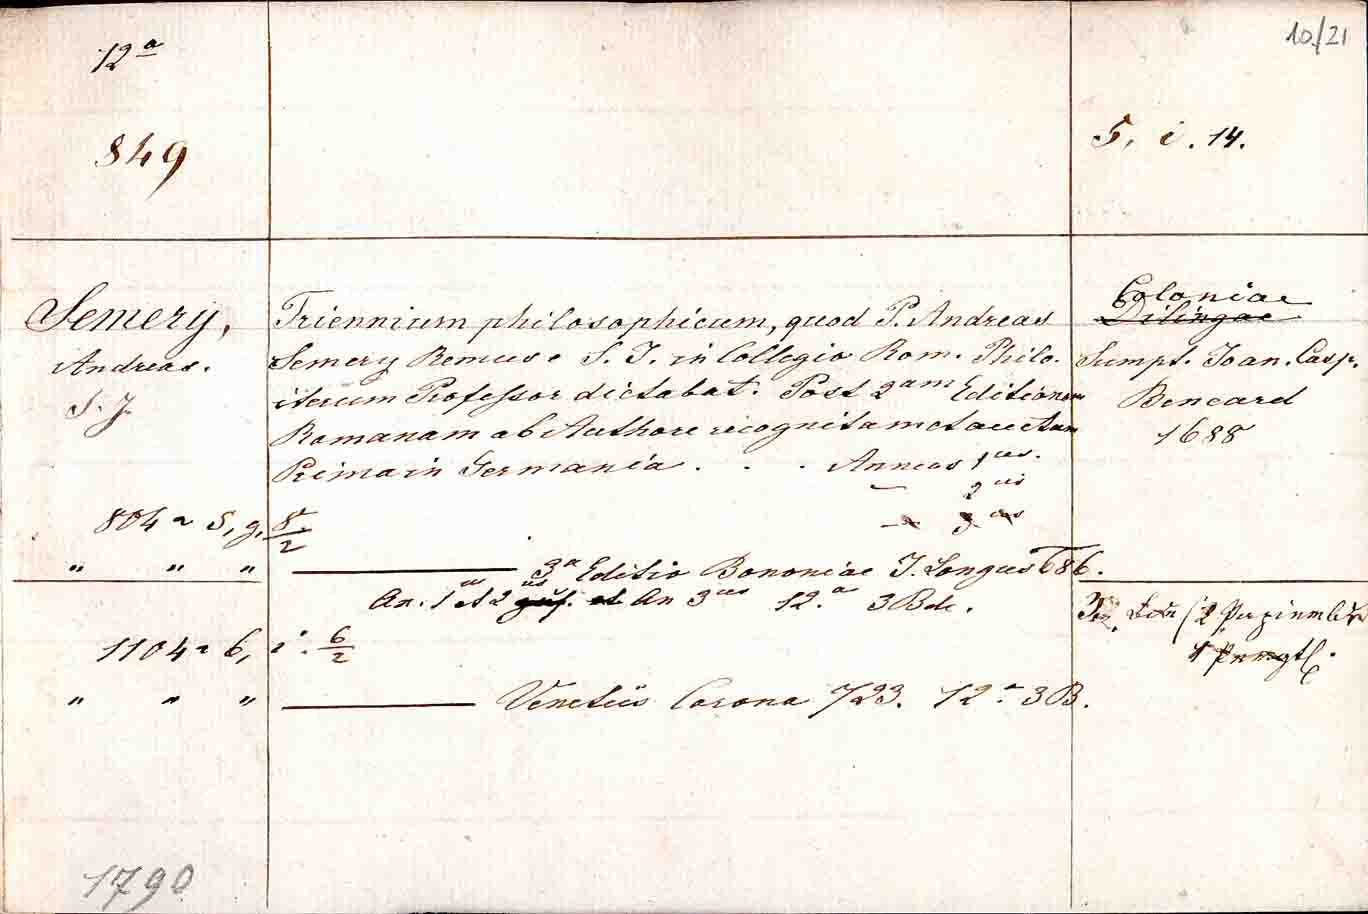 12ª
10/21
849
5, i. 14.
Semery,
Andreas.
S. J.
Triennium philosophicum, quod P. Andreas
Semery Remus e S. J. in Collegio Rom. Philo.
iterum Professor dictabat. Post 2am Editionem
Romanam ab Authore recognitam et auctam
Prima in Germania . . . Annus 1us.
— 2us
— 3us
Coloniae
Dilingae
Sumpt. Joan. Casp.
Bencard
1688
804 a 5, g. 8/2
" " " ——— 3a Editio Bononiae J. Longus 686.
An. 1us et 2us et An 3us 12.a 3 Bde.
3 Bde (2 Papierbde
1 Prmgtl.
1104 a 6, i. 6/2
" " " ——— Venetiis Corona 723. 12a 3 B.
1790